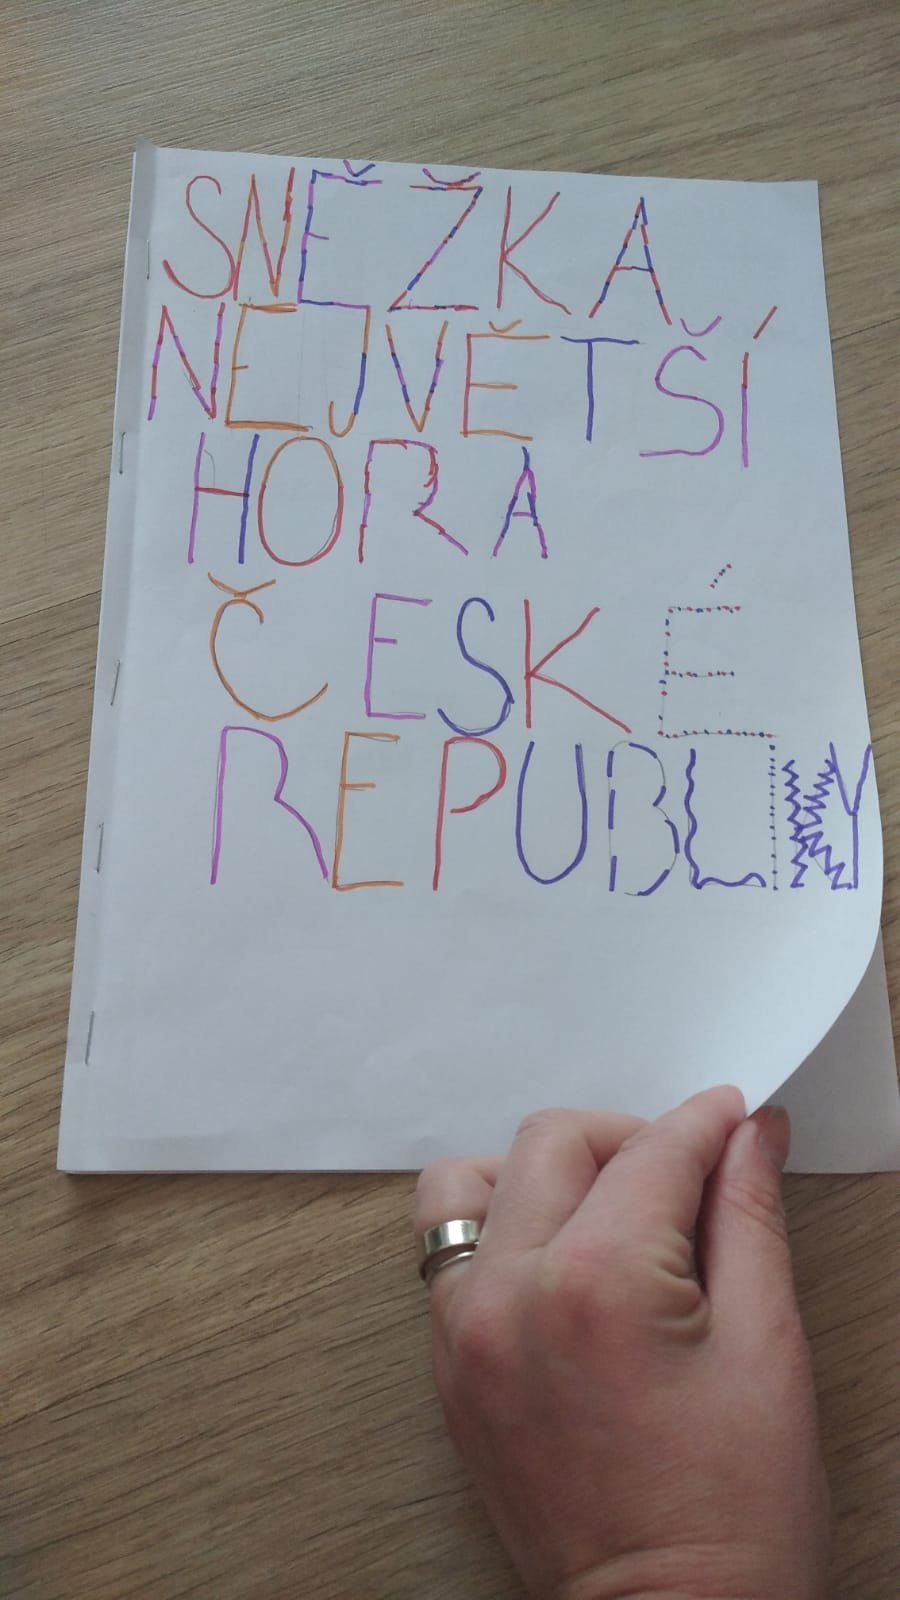 SNĚŽKA
NEJVĚTŠÍ
HORA
ČESKÉ
REPUBLIKY